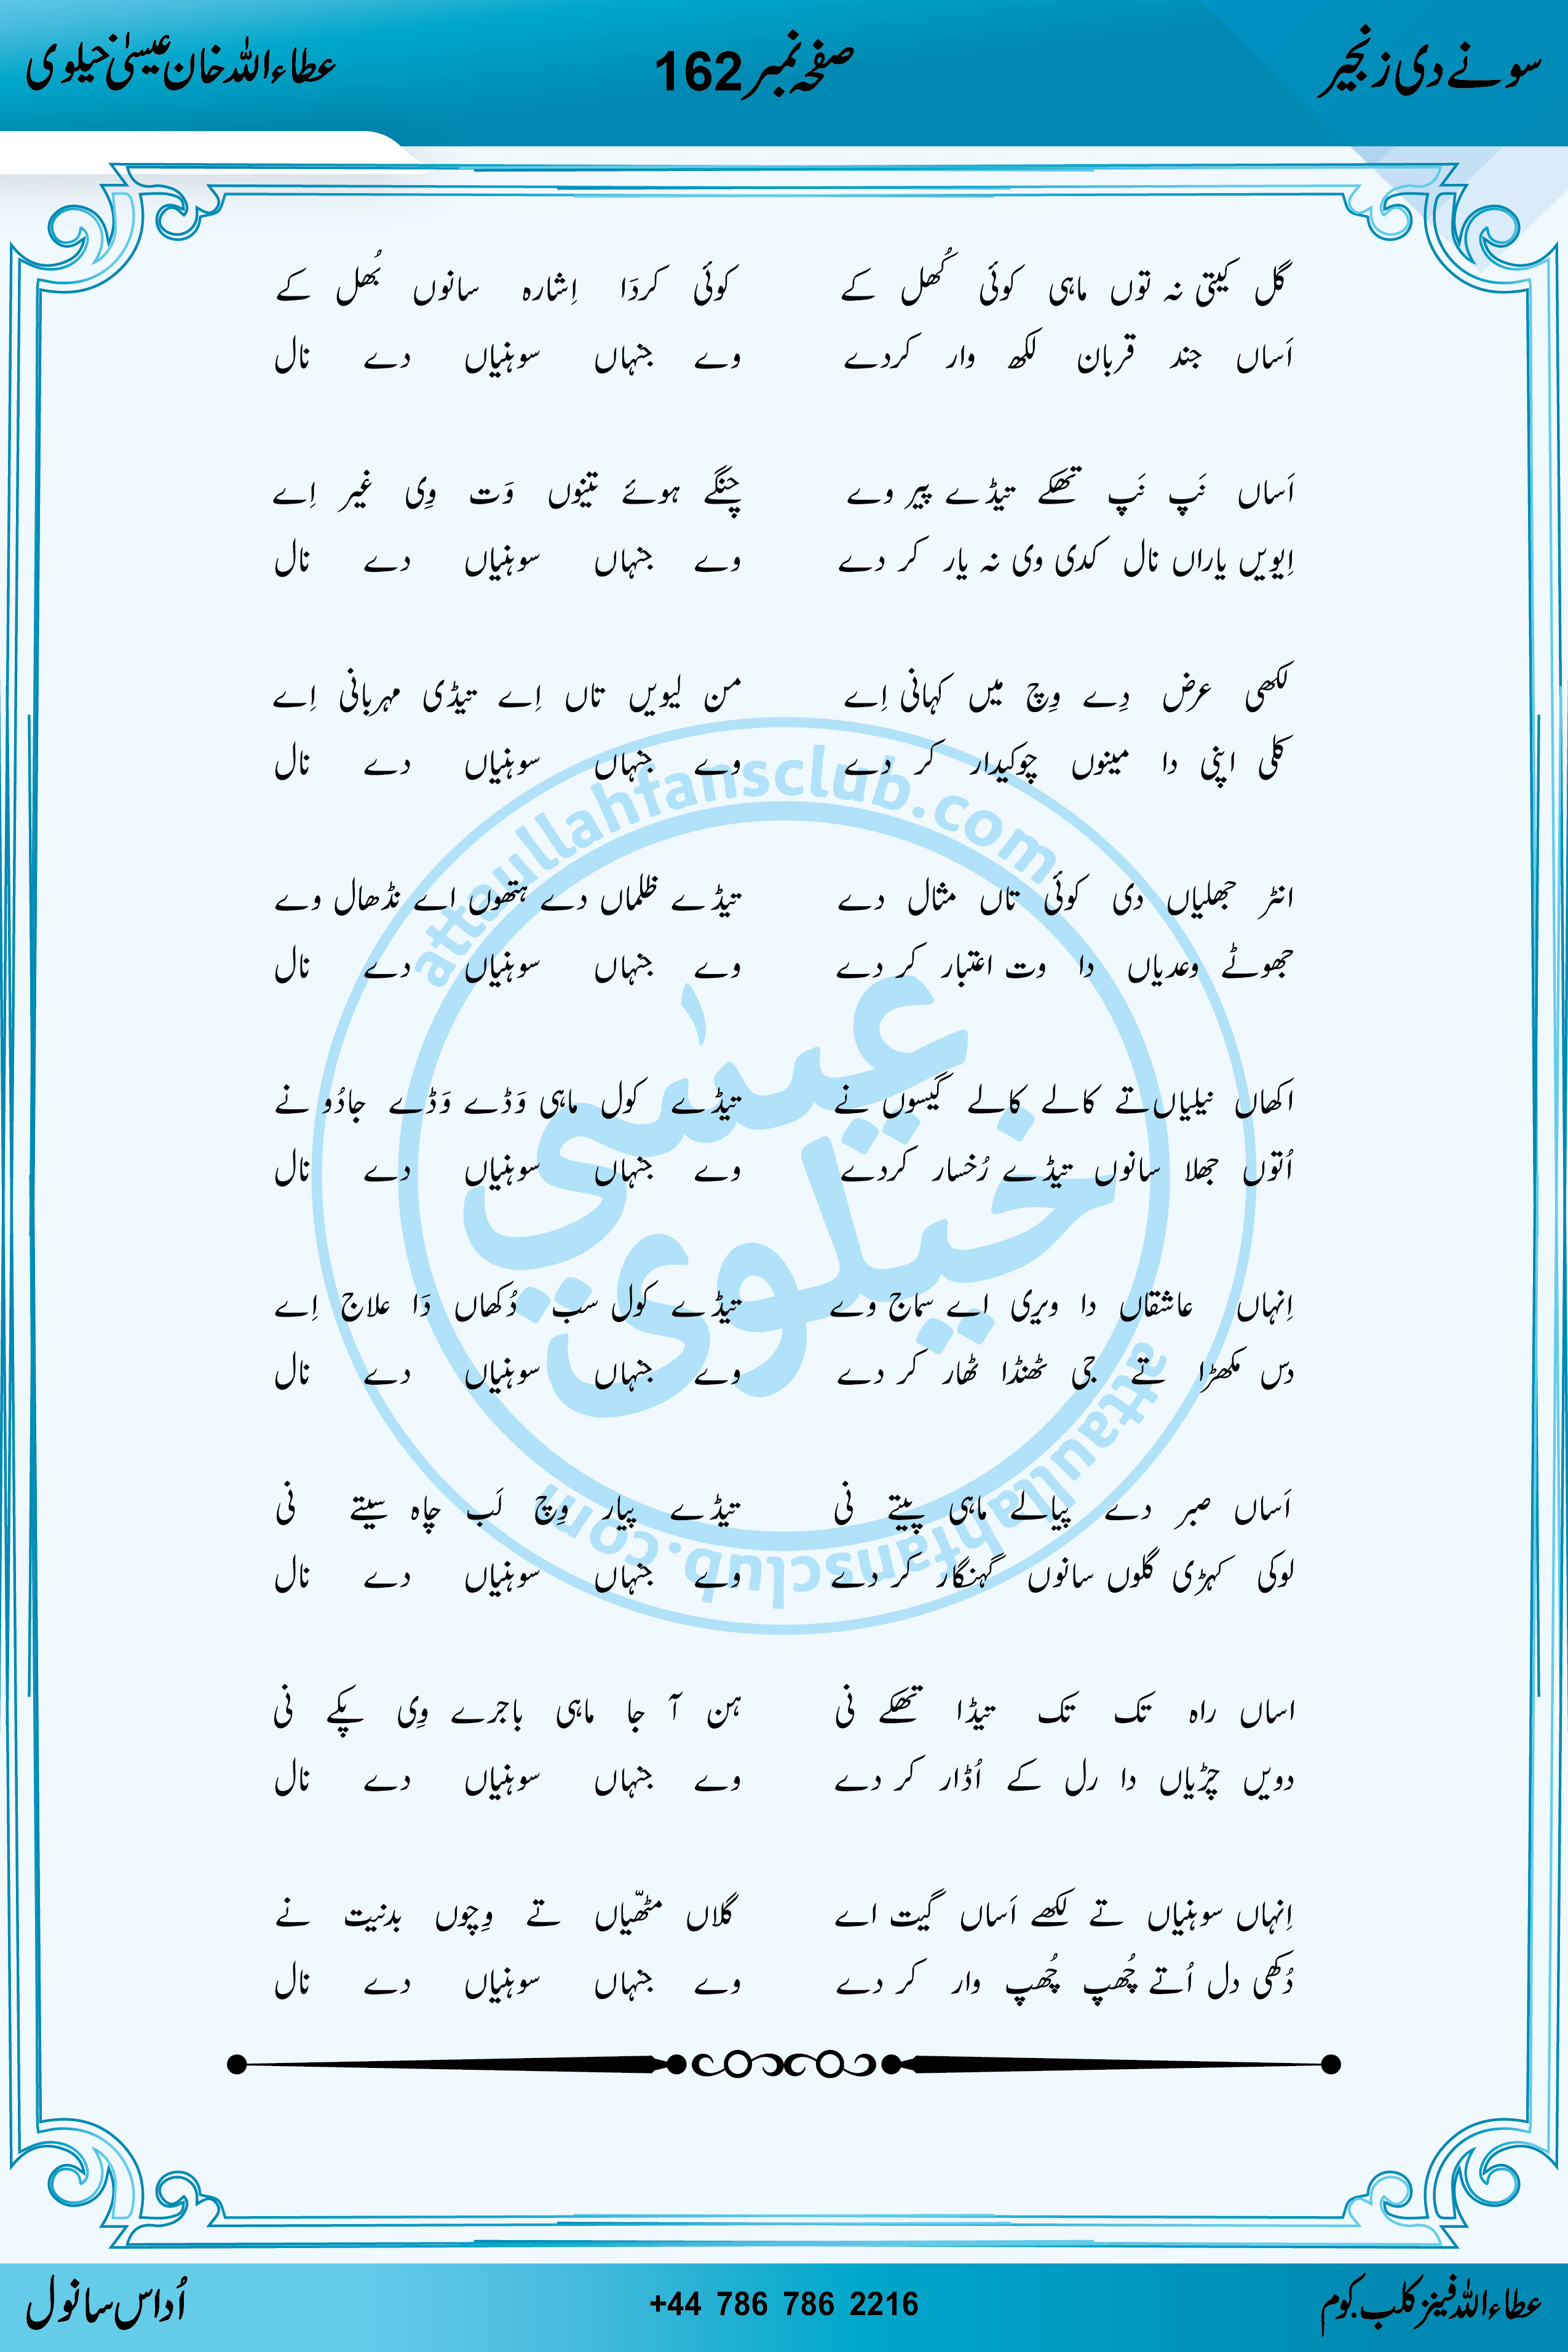 سونے دی زنجیر صفحہ نمبر 162 عطاءاللہ خان عیسیٰ خیلوی
گل کیتی نہ توں ماہی کوئی کُھل کے کوئی کردَا اِشارہ سانوں بُھل کے
اَساں جند قربان لکھ وار کردے وے جنہاں سوہنیاں دے نال
اَساں نَپ نَپ تھکے تیڈے پیر وے چَنگے ہوئے تینوں وَت وِی غیر اِے
اِیویں یاراں نال کدی وی نہ یار کر دے وے جنہاں سوہنیاں دے نال
لکھی عرض دِے وِچ میں کہانی اِے من لیویں تاں اِے تیڈی مہربانی اِے
کلی اپنی دا مینوں چوکیدار کر دے وے جنہاں سوہنیاں دے نال
انٹر جھلیاں دی کوئی تاں مثال دے تیڈے ظلماں دے ہتھوں اے نڈھال وے
جھوٹے وعدیاں دا وت اعتبار کر دے وے جنہاں سوہنیاں دے نال
اکھاں نیلیاں تے کالے کالے گیسوں نے تیڈے کول ماہی وَڈے وَڈے جادُو نے
اُتوں جھلا سانوں تیڈے رُخسار کردے وے جنہاں سوہنیاں دے نال
اِنہاں عاشقاں دا ویری اے سماج وے تیڈے کول سب دُکھاں دَا علاج اِے
دس مکھڑا تے جی ٹھنڈا ٹھار کر دے وے جنہاں سوہنیاں دے نال
اَساں صبر دے پیالے ماہی پیتے نی تیڈے پیار وِچ لَب چاہ سیتے نی
لوکی کہڑی گلوں سانوں گہنگار کر دے وے جنہاں سوہنیاں دے نال
اساں راہ تک تک تیڈا تھکے نی ہن آ جا ماہی باجرے وِی پکے نی
دویں چڑیاں دا رل کے اُڈار کر دے وے جنہاں سوہنیاں دے نال
اِنہاں سوہنیاں تے لکھے اَساں گیت اے گلاں مٹھّیاں تے وِچوں بدنیت نے
دُکھی دل اُتے چُھپ چُھپ وار کر دے وے جنہاں سوہنیاں دے نال
attaullahfansclub.com
عیسٰی
خیلوی
attaullahfansclub.com
عطاءاللہ فینز کلب.کوم +44 786 786 2216 اُداس سانول